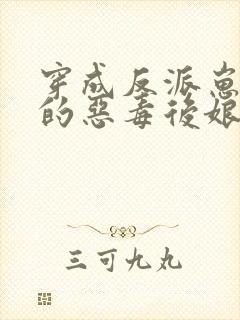 穿成反派崽
的惡毒後娘
三可九丸